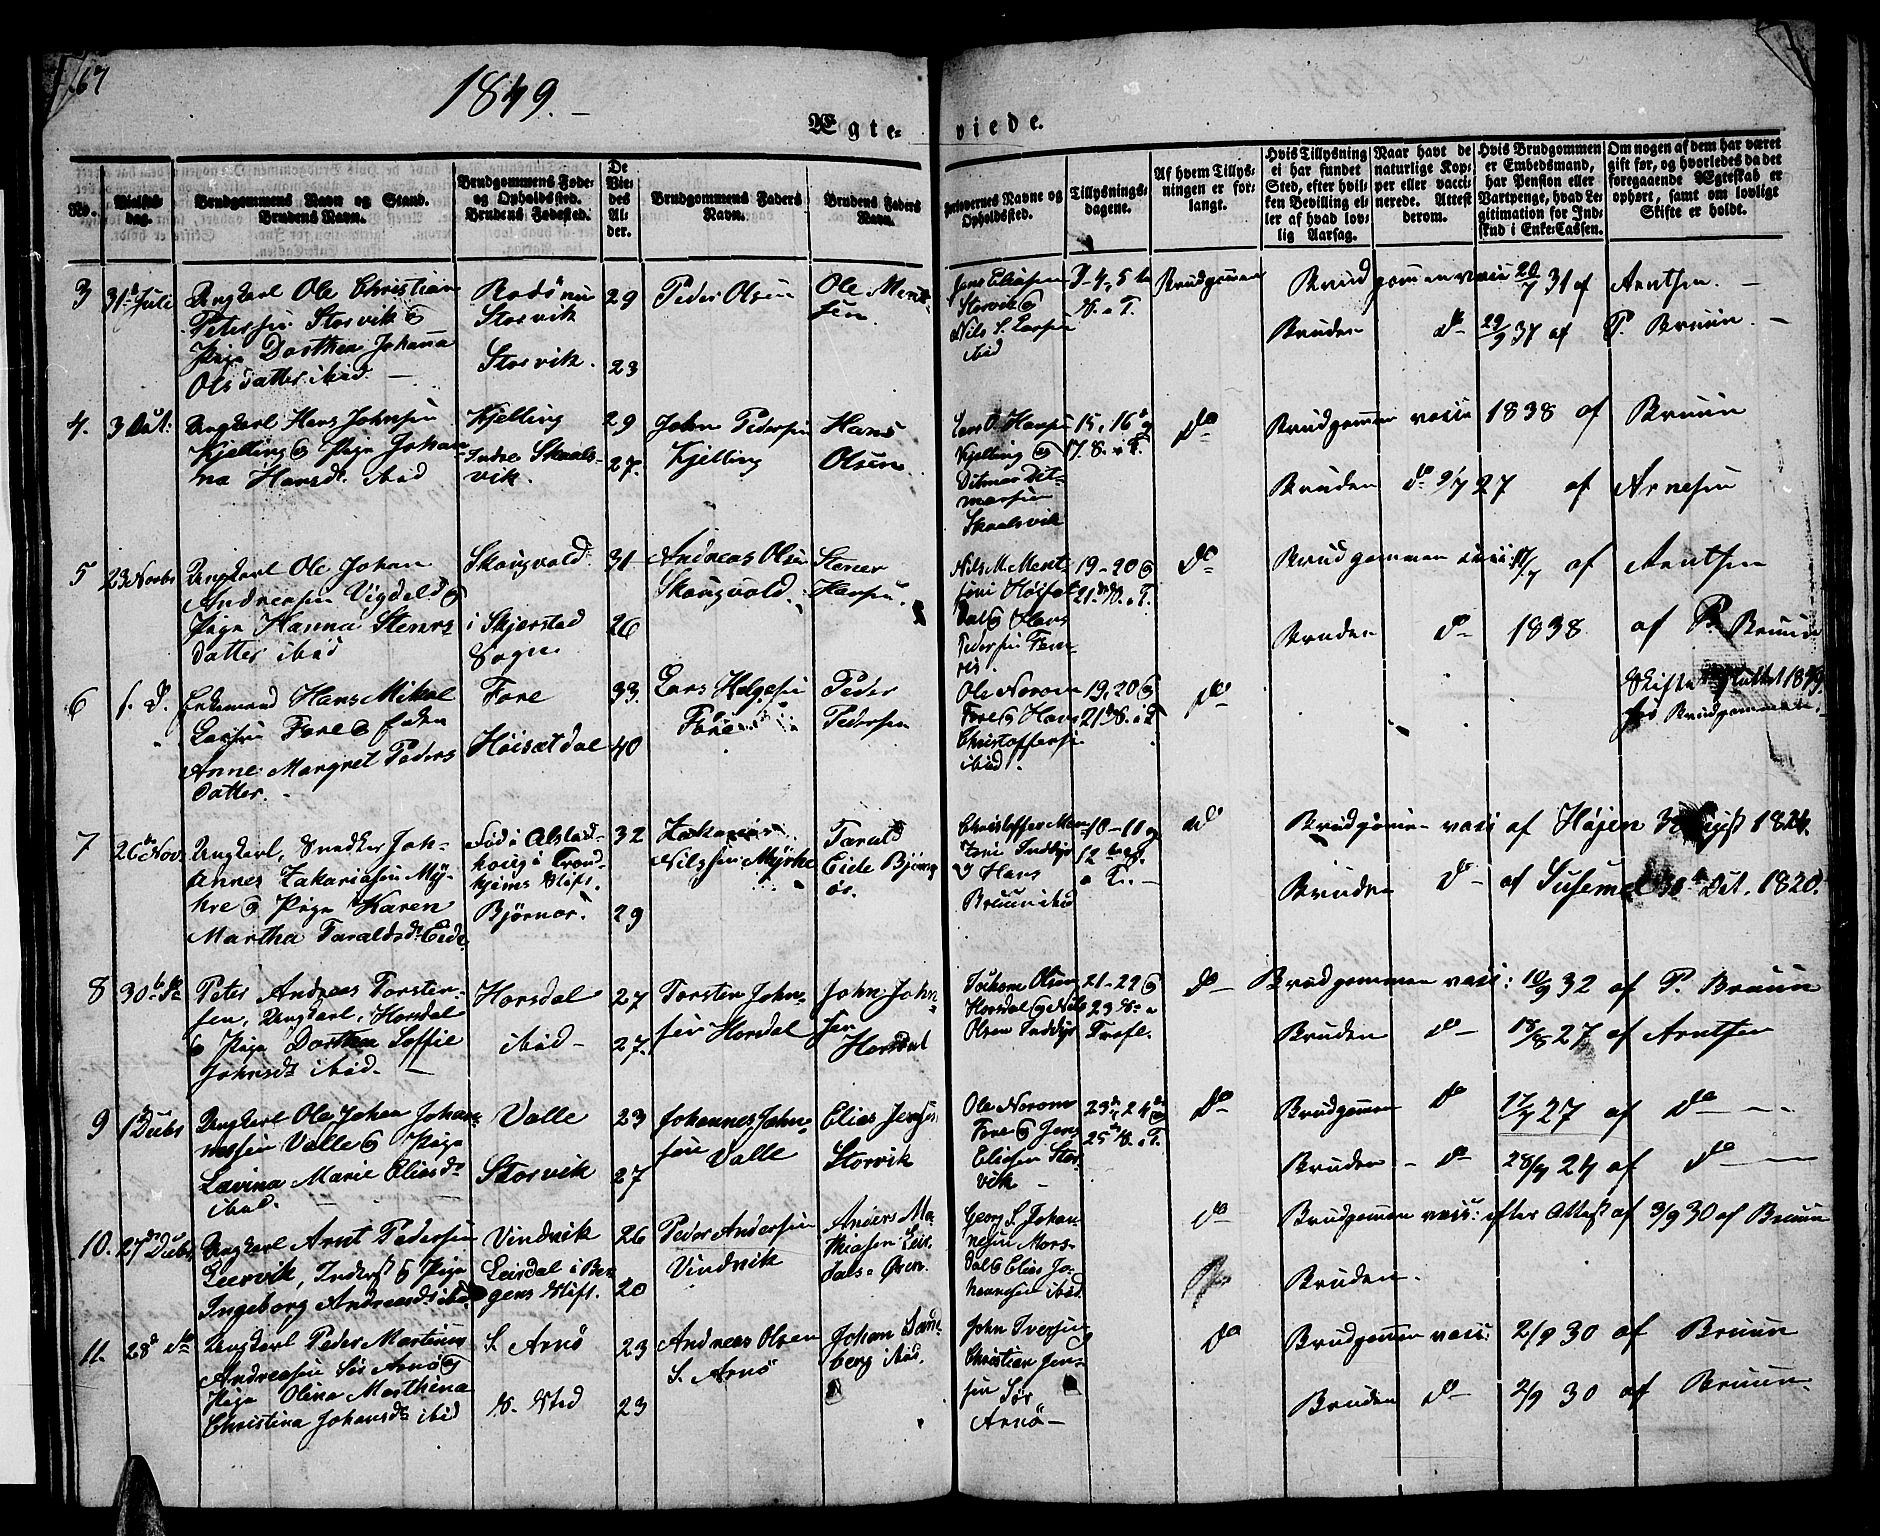 67
1849.
Ægte-
viede.
No.
Vielses-
dag.
Brudgommens Navn og Stand.
Brudens Navn.
Brudgommens Føde-
og Opholdssted.
Brudens Fødested.
De
Vie-
des
Al-
der.
Brudgommens Faders
Navn.
Brudens Faders
Navn.
Forlovernes Navne og
Opholdssted.
Tillysnings-
dagene.
Af hvem Tillys-
ningen er for-
langt.
Hvis Tillysning
ei har fundet
Sted, efter hvil-
ken Bevilling el-
ler af hvad lov-
lig Aarsag.
Naar havt de
naturlige Kop-
per eller vacci-
nerede. Attest
derom.
Hvis Brudgommen
er Embedsmand,
har Pension eller
Vartpenge, hvad Le-
gitimation for Ind-
skud i Enke-Cassen.
Om nogen af dem har været
gift før, og hvorledes da det
foregaaende Ægteskab er
ophørt, samt om lovligt
Skifte er holdt.
3
31te Juli
Ungkarl Ole Christian
Petersen Storvik &
Pige Dorthea Johanna
Olsdatter ibid. —
Rodönu
Storvik
Storvik.
29
23
Peder Olsen
Ole Ment-
sen
Jens Eliasen
Storvik &
Nils L. Larsen
ibid
3-4, 5 te
S. e. T.
Brudgomen
Brudgommen vacc 20/7 31 af Arntsen. —
Bruden do 29/9 37 af P. Bruun. —
4.
3 Oct.
Ungkarl Hans Johnsen
Kjelling & Pige Johan-
na Hansd. ibid
Kjelling
Indre Skaals-
vik.
29
27.
John Pedersen
Kjelling
Hans
Olsen
Lars O. Hansen
Kjelling &
Ditmar Dit-
marsen
Skaalsvik
15, 16 &
17. S. e. T.
do
Brudgommen vacc 1838 af Bruun
Bruden do 9/7 27 af Arnesen
5
23 Novbr
Ungkarl Ole Johan
Andreasen Vigdel &
Pige Hanna Steners
datter ibid
Skougvold
i Skjerstad
Sogn
31
26
Andreas Olsen
Skougvold.
Stener
Hansen.
Nils M. Ment-
sen Høisæt-
dal & Hans
Pedersen
19-20 &
21. S. e. T.
do
Brudgommen vacc af Arntsen
Bruden do 1838 af P. Bruun
6
s. D.
Enkemand Hans Mikal
Larsen Fore & Enken
Anne Margret Peders
datter. -
Fore
Høisætdal
33.
40
Lars Helgesen
Fore
Peder
Pedersen
Ole Norom
Fore & Hans
Christoffersen
ibid.
19, 20 &
21 S. e. T
do
Skifte sluttet 1849
for Brudgommen
7
26 Nov.
Ungkarl, Snedker Joh-
annes Zakariasen My-
hre & Pige Karen
Martha Taraldsd. Eide
Född i Alstad-
houg i Trond-
hjems Stift.
Björnör.
32
29
Zakarias
Nilssen Myrhe
Tarald
Eide Björn-
ör.
Christoffer Men-
tsen Inddyr
& Hans
Bruun ibid
10-11 &
12 S.
e. T. —
do
Brudgommen vacc af Højen 1824.
Bruden do af Susemel Oct. 1820.
8
30te do
Peter Andreas Torsten-
sen, Ungkarl, Horsdal
& Pige Dorthea Soffie
Johnsd. ibid. —
Horsdal
ibid —
27
27.
Torsten John-
sen Horsdal
John John-
sen
Horsdal
Jochom Olsen
Horsdal & Nils
Olsen Inddyr
21-22 &
23 S. e
Trefl.
do
Brudgommen vacc: 10/9 32 af P. Bruun
Bruden do 18/8 27 af Arntsen
9
1 Decbr
Ungkarl Ole Johan Johan-
nessen Valle & Pige
Lavina Marie Eliasd.
ibid. —
Valle
Storvik
23
27
Johannes John-
sen Valle
Elias Jensen
Storvik
Ole Norom
Fore & Jens
Eliasen Stor-
vik —
23, 24 &
25 S. e. T.
do
Brudgommen do 17/7 27 af do — —
Bruden - do 28/9 24 af do —
10.
27de Decbr
Ungkarl Arnt Pedersen
Leervik, Inderst & Pige
Ingeborg Andreasd. ibid
Vindvik
Leirdal i Ber-
gens Stift.
26
20
Peder Andersen
Vindvik
Anders Ma-
thiasen Leir-
dals-Øren.
Georg S. Johan-
nesen Mors-
dal & Elias Jo-
hannesen ibid
do
Brudgommen vacc: efter Attest af 3/9 30 af Bruun
Bruden.
11.
28d do
Ungkarl Peder Martinus
Andreasen Sør Arnø &
Pige Olina Marthina
Christina Johansd. ibid
S. Arnö
S. Sted
23
23
Andreas Olsen
S. Arnö
Johan Sand-
berg ibid.
John Iversen &
Christian Jen-
sen Sör
Arnö —
do
Brudgommen vacc: 2/9 30 af Bruun
Bruden do 2/9 30 af Bruun.